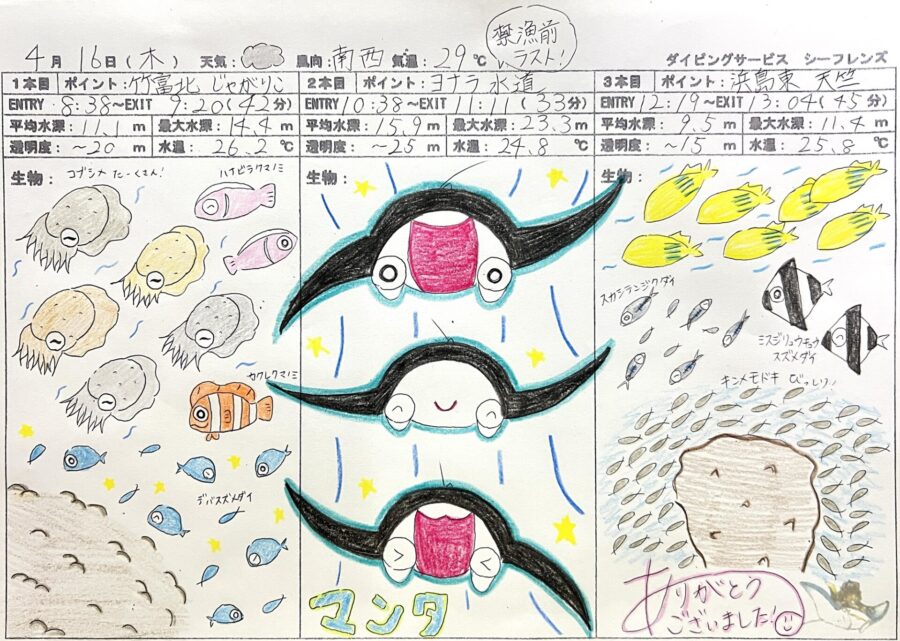 禁漁前
ラスト!
4月16日(木) 天気: 風向:南西 気温:29℃
ダイビングサービス シーフレンズ
1本目 ポイント:竹富北 じゃがりこ
ENTRY 8:38~EXIT 9:20(42分)
平均水深:11.1m 最大水深:14.4m
透明度:~20m 水温:26.2℃
生物:
コブシメ たーくさん!
ハナビラクマノミ
カクレクマノミ
デバスズメダイ
2本目 ポイント:ヨナラ水道
ENTRY 10:38~EXIT 11:11(33分)
平均水深:15.9m 最大水深:23.3m
透明度:~25m 水温:24.8℃
生物:
マンタ
3本目 ポイント:浜島東 天竺
ENTRY 12:19~EXIT 13:04(45分)
平均水深:9.5m 最大水深:11.4m
透明度:~15m 水温:25.8℃
生物:
スカシテンジクダイ
ミスジリュウキュウ
スズメダイ
キンメモドキ びっしり!
ありがとう
ございました!